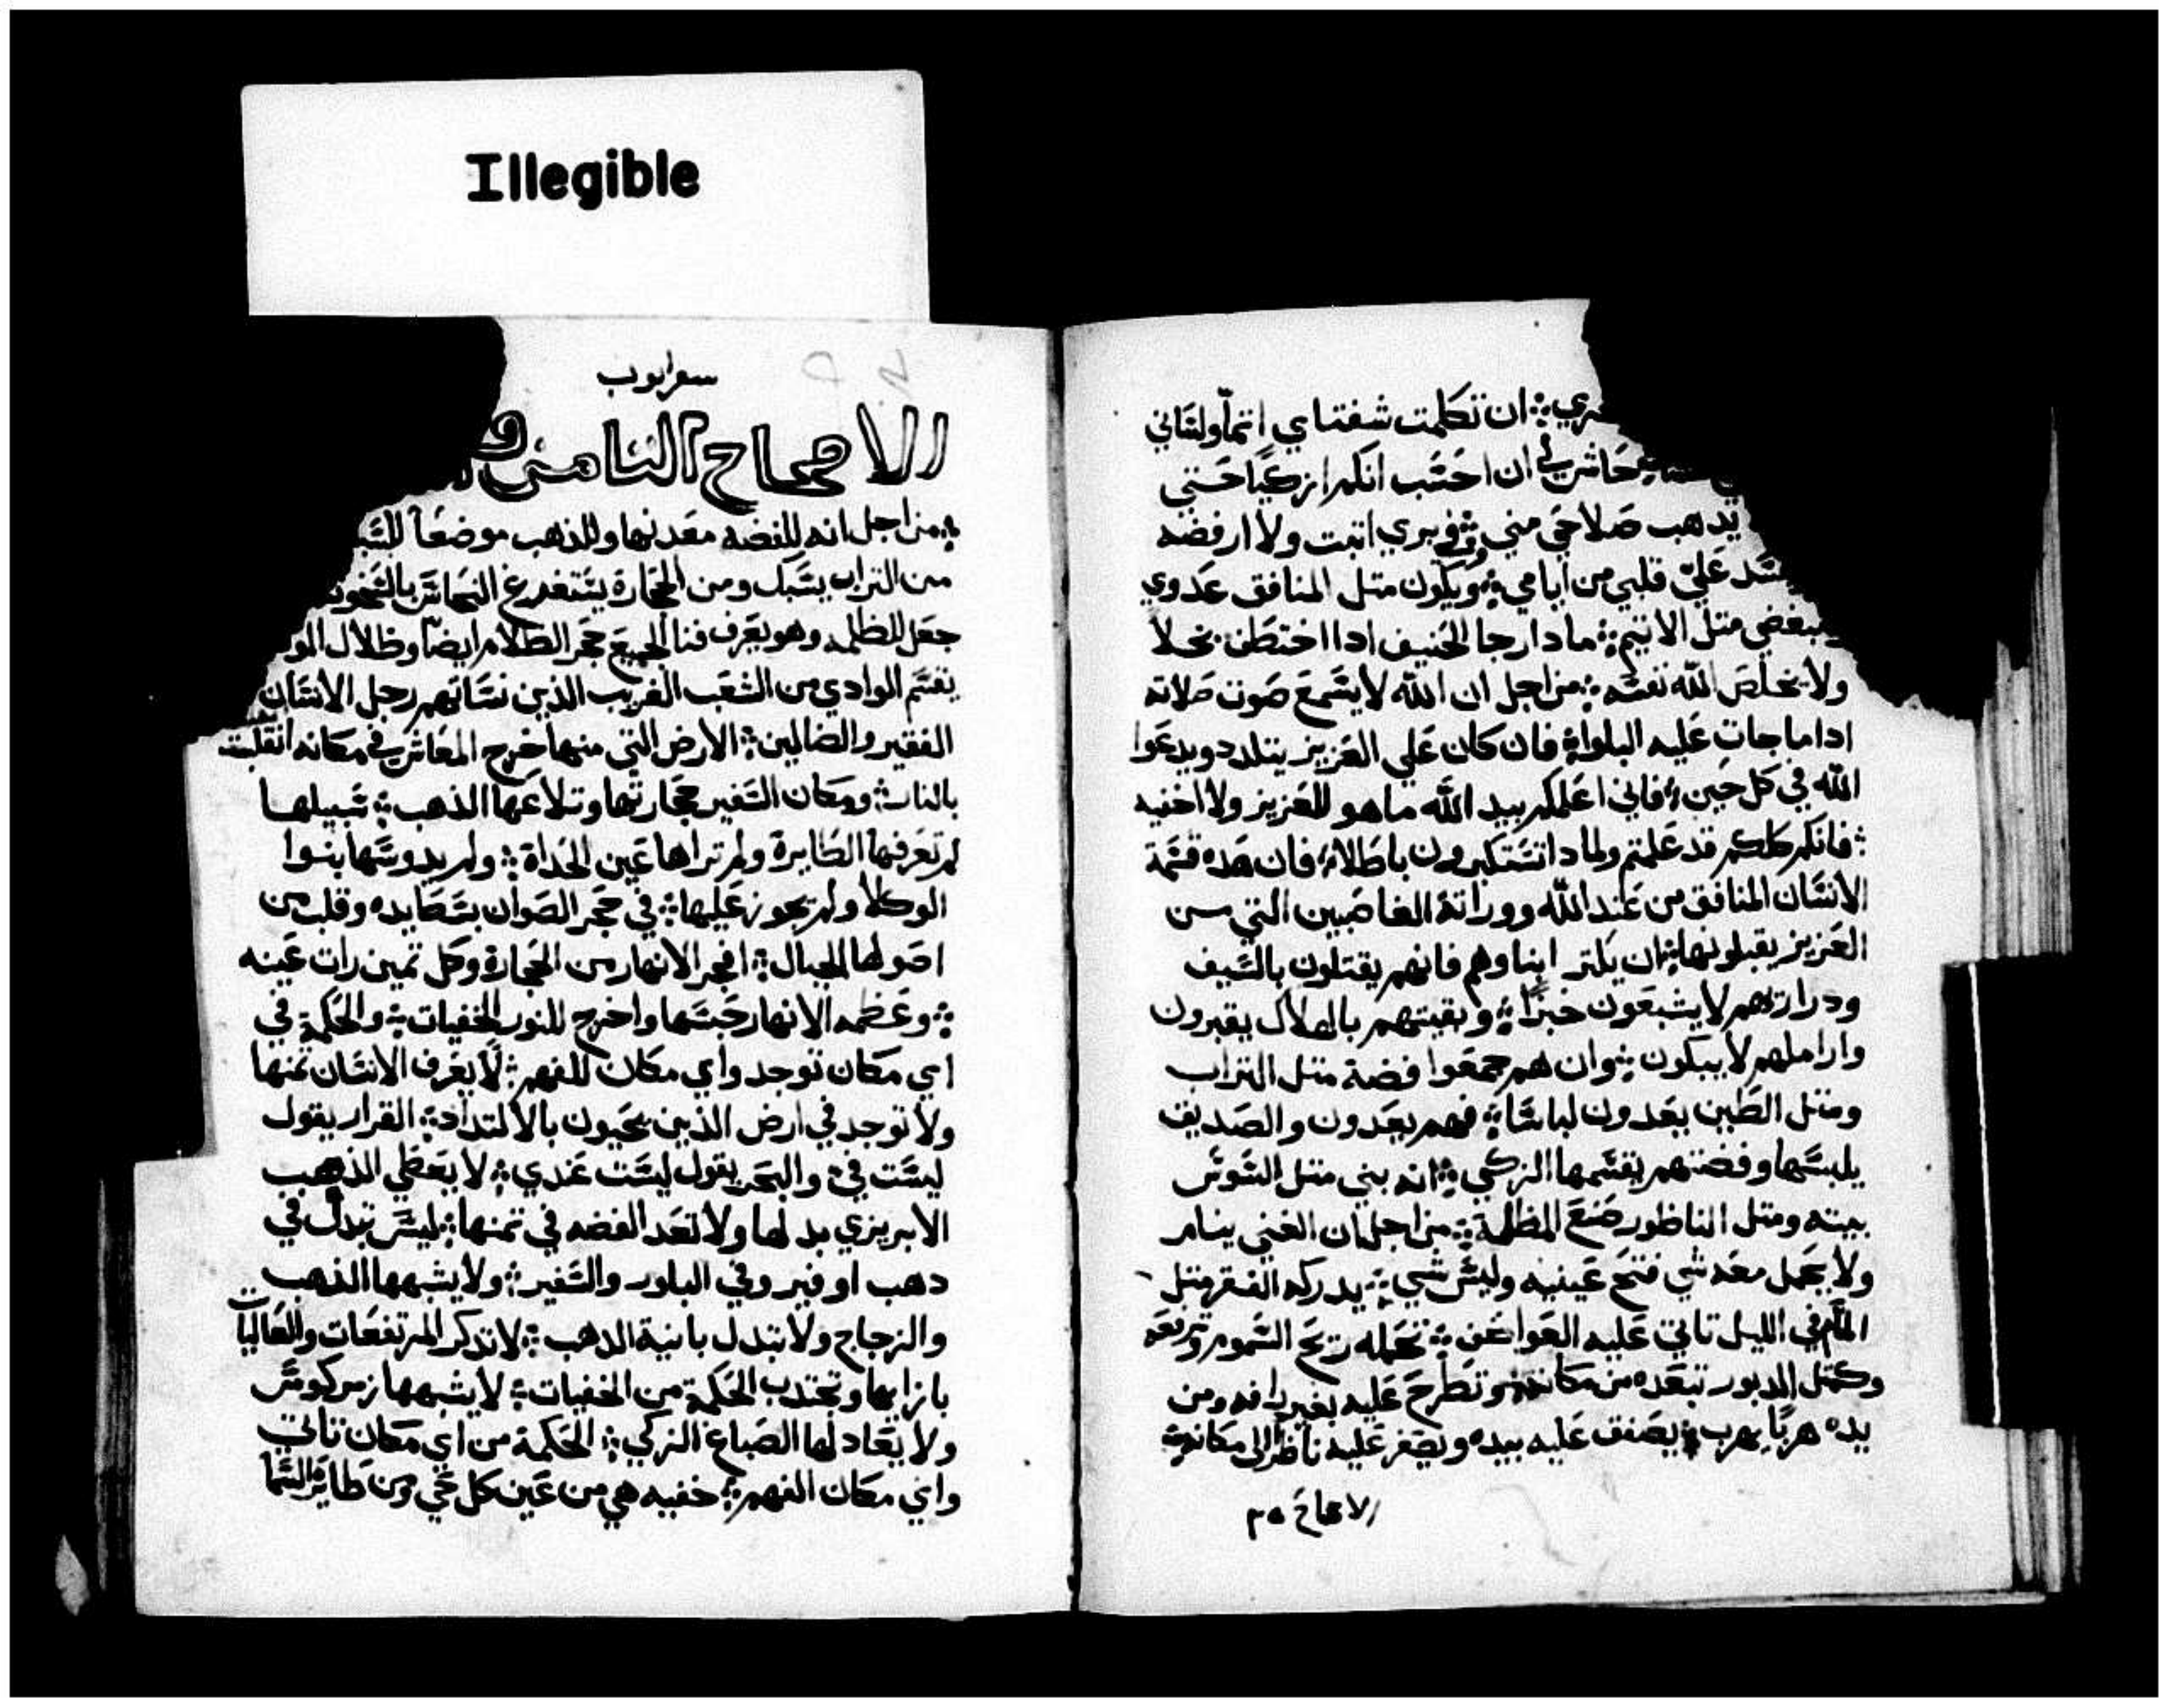 Illegible
ان تكلمت شفتاي اثماً ولساني
حاش لي ان احسب انكم ازكيا حتي
يدهب صلاحي مني ⁘ وفي بري اتبت ولا ارفضه
علي قلبي من ايامي ⁘ ويكون متل المنافق عدوي
ومبغضي متل الاتيم ⁘ مادا رجا الحنيف ادا اختطف بخلاً
ولا يخلص الله نفسه ⁘ من اجل ان الله لا يسمع صوت صلاته
اداما جات عليه البلوا ⁘ فان كان علي العزيز يتلدد ويدعوا
الله في كل حين ⁘ فاني اعلمكم بيد الله ما هو للعزيز ولا اخفيه
⁘ فانكم كلكم قد علمتم ولمادا تستكبرون باطلا ⁘ فان هده قسمة
الانسان المنافق من عند الله ووراتة الغاصبين التي من
العزيز يقبلونها ⁘ ان يكتر ابناوهم فانهم يقتلون بالسيف
ودراريهم لا يشبعون خبزاً ⁘ وبقيتهم بالهلاك يقبرون
واراملهم لا يبكون ⁘ وان هم جمعوا فضة متل التراب
ومتل الطين يعدون لباساً ⁘ فهم يعدون والصديق
يلبسها وفضتهم يقسمها الزكي ⁘ انه بني متل السوس
بيته ومتل الناظور صنع المظلة ⁘ من اجل ان الغني ينام
ولا يحمل معه شي فتح عينيه وليس شي ⁘ يدركه الفقر متل
الما في الليل تاتي عليه العواصف ⁘ تحمله ريح السموم وترفعه
وكمتل الدبور تبعده من مكانه ⁘ وتطرح عليه بغير رافه ومن
يده هرباً يهرب ⁘ يصفق عليه بيده ويصفر عليه ناظراً الي مكانه ⁘
الاصحاح ٢٥
سفر ايوب
الاصحاح التامن و
⁘ من اجل انه للفضه معدنها وللذهب موضعاً
من التراب يسبك ومن الحجارة يستفرغ النحاس بالسخونة
جعل للظلمه وهو يعرف فنا الجميع حجر الظلام ايضاً وظلال الموت
يقسم الوادي من الشعب الغريب الذين نساتهم رجل الانسان
الفقير والضالين ⁘ الارض التي منها خرج المعاش في مكانه انقلبت
بالنار ⁘ ومكان السفير حجارتها وتلاعها الذهب ⁘ سبيلها
لم تعرفها الطايرة ولم تراها عين الحداة ⁘ ولم يدوسها بنوا
الوكلا ولم يجوز عليها ⁘ في حجر الصوان بسط يده وقلب من
اصولها الجبال ⁘ افجر الانهار من الحجارة وكل تمين رات عينه
⁘ وعظمه الانهار حبسها واخرج للنور الخفيات ⁘ والحكمة في
اي مكان توجد واي مكان للفهم ⁘ لا يعرف الانسان تمنها
ولا توجد في ارض الذين يحيون بالالتداد ⁘ القرار يقول
ليست في ⁘ والبحر يقول ليست عندي ⁘ لا يعطي الذهب
الابريزي بدلها ولا تعد الفضه في تمنها ⁘ ليس تبدل في
دهب اوفير وفي البلور والسفير ⁘ ولا يشبهها الذهب
والزجاج ولا تبدل بانية الدهب ⁘ لا تدكر المرتفعات والعاليات
بازايها وتجتدب الحكمة من الخفيات ⁘ لا يشبهها زمر كوس
ولا يعادلها الصباغ الزكي ⁘ الحكمة من اي مكان تاتي
واين مكان الفهم ⁘ خفيه هي من عين كل حي ومن طاير السما